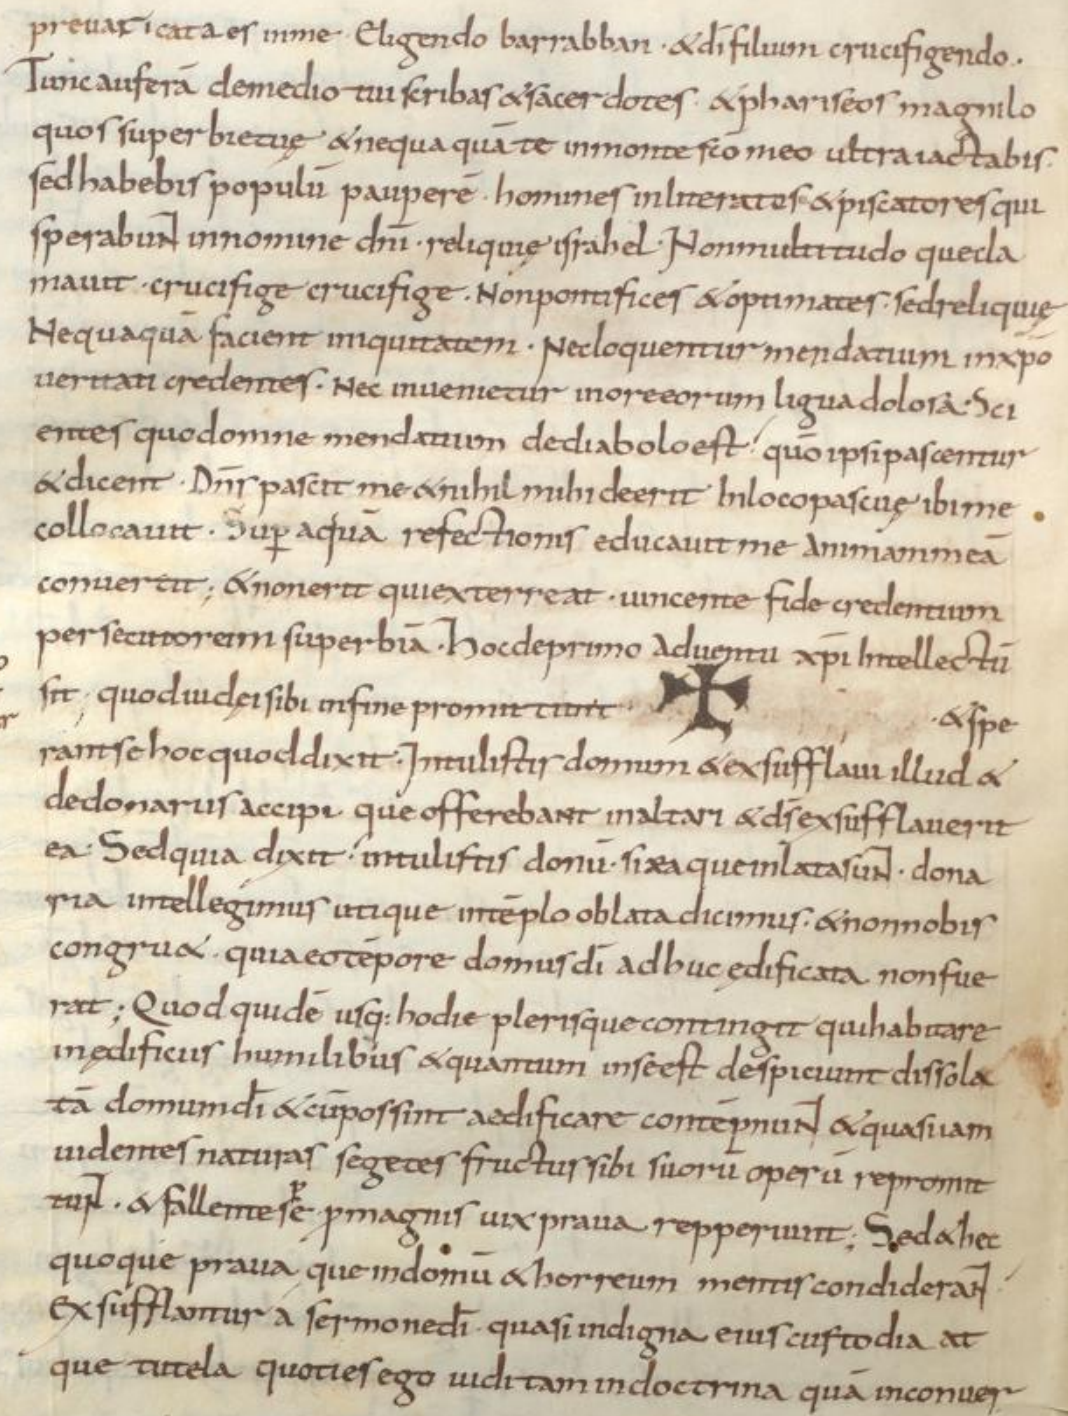 preuaricata es inme · Eligendo barrabban · &dī filium crucifigendo ·
Tunc auferā demedio tui scribas &sacerdotes · &phariseos magnilo
quos superbietuę &nequaquā te inmonte sc̄o meo ultra iactabis ·
sed habebis populū pauperē · homines inliteratos &piscatores qui
sperabunt innomine dn̄i · reliquię israhel · Nonmultitudo quecla
mauit · crucifige crucifige · Nonpontifices &optimates · sedreliquię
Nequaquā facient iniquitatem · Necloquentur mendatium inxp̄o
ueritati credentes · Nec inuenietur inoreeorum ligua dolosa · Sci
entes quodomne mendatium dediaboloest · quō ipsipascentur
&dicent · Dn̄s pascit me &nihil mihi deerit Inlocopascuę ibime
collocauit · Sup aquā refectionis educauit me Animammeā
conuertit ; &nonerit quiexterreat · uincente fide credentium
persecutorum superbiā · hocdeprimo Aduentu xp̄i Intellectū
sit · quodiudęisibi infine promittunt · &spe
rantse hocquoddixit · Intulistis domum &exsufflaui illud &
dedonariis accipi que offerebant inaltari &dn̄s exsufflauerit
ea · Sedquia dixit · intulistis donū · siea queinlatasunt · dona
ria intellegimus utique intēplo oblata dicimus · &nonnobis
congru& · quia eotēpore domusdī adhuc ędificata nonfue
rat ; Quod quidē usq: hodie plerisque contingit quihabitare
inędificiis humilibus &quantum inseest despiciunt dissola
tā domumdī &cūpossint aedificare contēpnunt &quasuam
uidentes naturas segetes fructus sibi suorū operū repromit
tunt · &fallentese pmagnis uix praua repperiunt ; Sed&hec
quoque praua queindomū &horreum mentis condiderant
Exsufflantur a sermonedī · quasi indigna eius custodia at
que tutela quotiesego uidi tam indoctrina quā inconuer